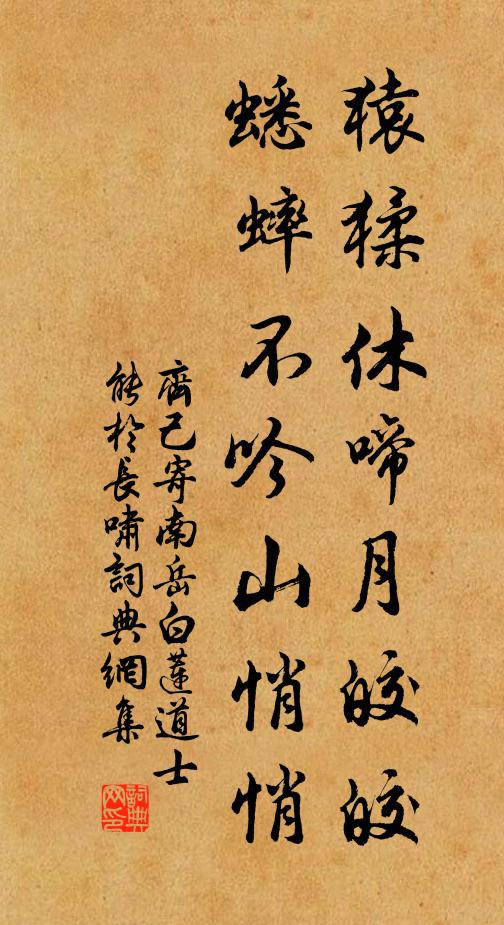 猿猱休啼月皎皎
蟋蟀不吟山悄悄
齊己寄南岳白蓮道士
能於長嘯詞典網集
詞典
网印